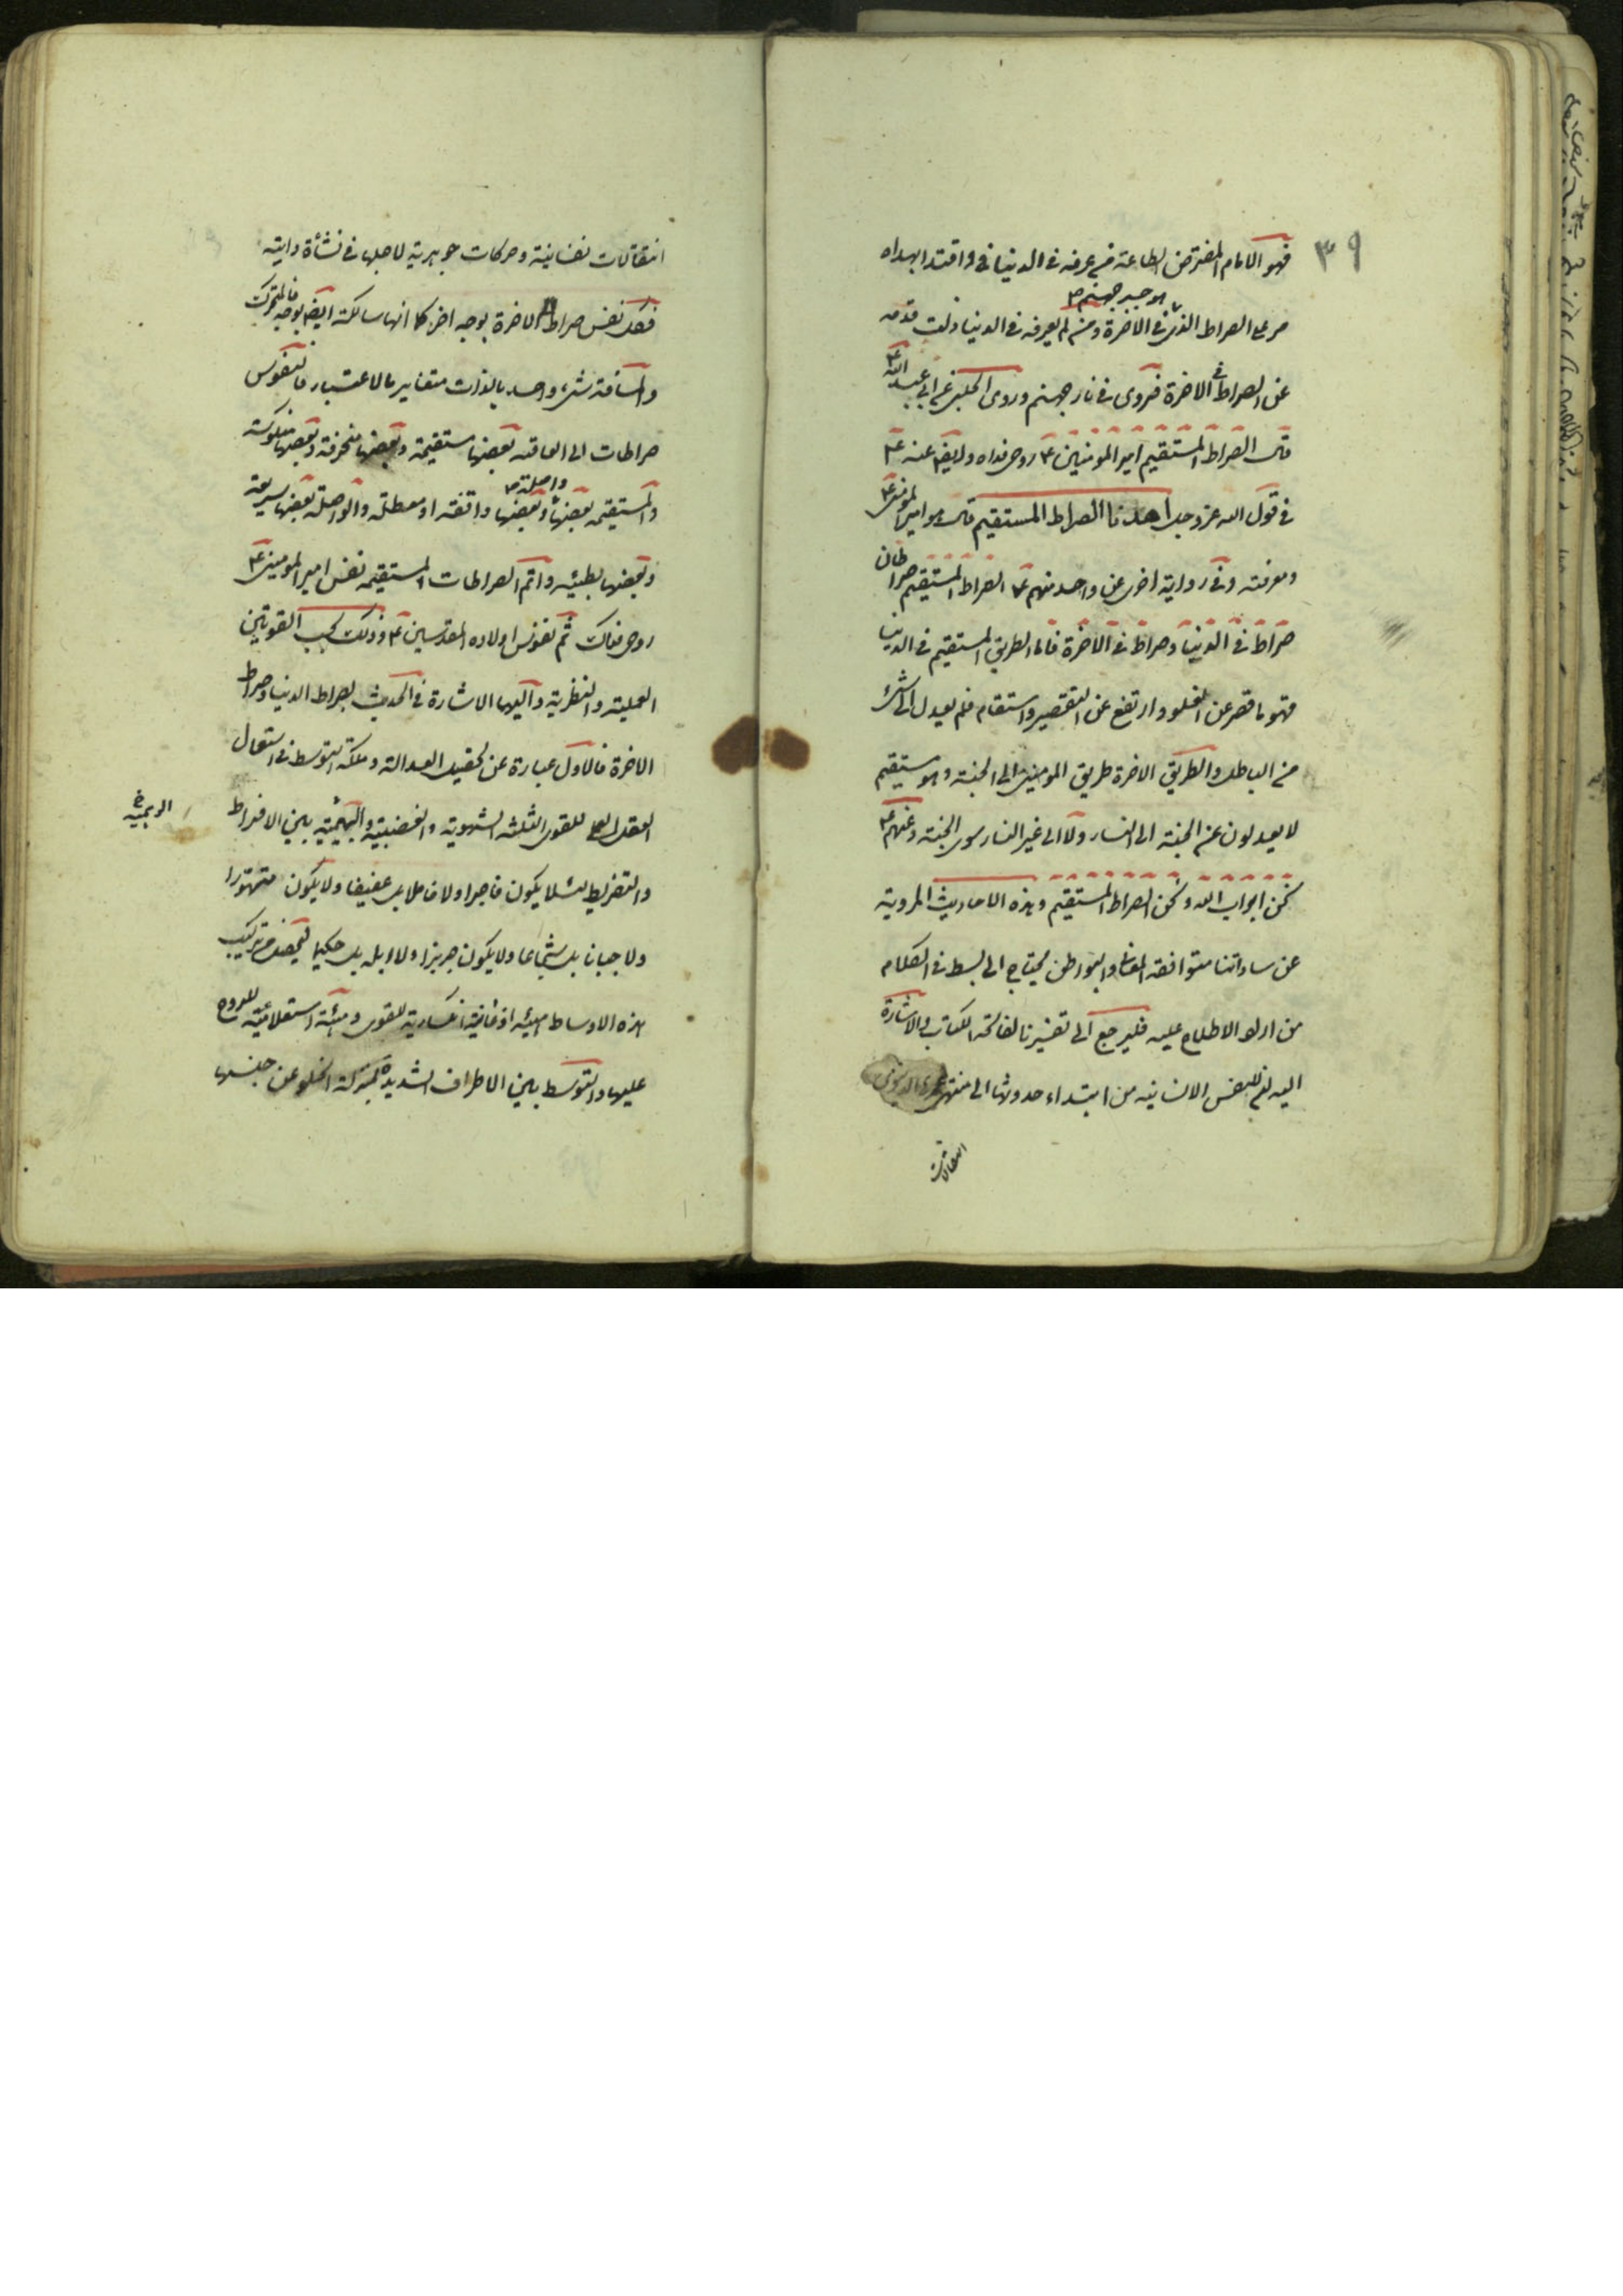 ٣٩
فهو الامام المفترض الطاعة من عرفه فى الدنيا فى واقتدا بهداه
مر على الصراط الذى هو جسر جهنم فى الاخرة ومن لم يعرفه فى الدنيا زلت قدمه
عن الصراط فى الاخرة فتروى فى نار جهنم وروى الحلبى عن ابى عبد الله ع
قال الصراط المستقيم امير المومنين ع روحى فداه وايضا عنه ع
فى قول الله عز وجل اهدنا الصراط المستقيم قال هو امير المومنين ع
ومعرفته وفى رواية اخرى عن واحد منهم ع الصراط المستقيم صراطان
صراط فى الدنيا وصراط فى الاخرة فاما الطريق المستقيم فى الدنيا
فهو ما قصر عن الغلو وارتفع عن التقصير واستقام فلم يعدل الى شئ
من الباطل والطريق الاخرة طريق المومنين الى الجنة وهو مستقيم
لا يعدلون عن الجنة الى النار ولا الى غير النار سوى الجنة وعنهم ع
نحن ابواب الله ونحن الصراط المستقيم وهذه الاحاديث المروية
عن ساداتنا متوافقة المعانى والبواطن يحتاج الى بسط فى الكلام
من اراد الاطلاع عليه فليرجع الى تفسيرنا لفاتحة الكتاب والاشارة
اليه ان للنفس الانسانية من ابتداء حدوثها الى منتهى عمرها الدنيوى
انتقالات
انتقالات نفسانية وحركات جوهرية لاجلها فى نشأة ذاتية
فكل نفس صراط الاخرة بوجه اخر كما انها سالكة ايضا بوجه فالمتحرك
والمسافة شئ واحد بالذات متغاير بالاعتبار فالنفوس
صراطات الى العاقبة بعضها مستقيمة وبعضها منحرفة وبعضها منكوسة
والمستقيمه بعضها واصلة وبعضها واقفة او معطلة والواصلة بعضها سريعة
وبعضها بطيئه واتم الصراطات المستقيمه نفس امير المومنين ع
روحى فداك ثم نفوس اولاده المقدسين ع وذلك بحسب القوتين
العملية والنظرية واليهما الاشارة فى الحديث بصراط الدنيا وصراط
الاخرة فالاول عبارة عن تحصيل العدالة وملكة التوسط فى استعمال
العقل العملى للقوى الثلثه الشهوية والغضبية والبهيمية بين الافراط
الوهمية خ
والتفريط لئلا يكون فاجرا ولا خاملا بل عفيفا ولا يكون متهورا
ولا جبانا بل شجاعا ولا يكون جربزا ولا ابله بل حكيما ليحصل من تركيب
هذه الاوساط هيئه اذعانية انكسارية للقوى وهيئة استعلائية للروح
عليها والتوسط بين الاطراف الشديدة بمنزلة الخلو عن جنسها